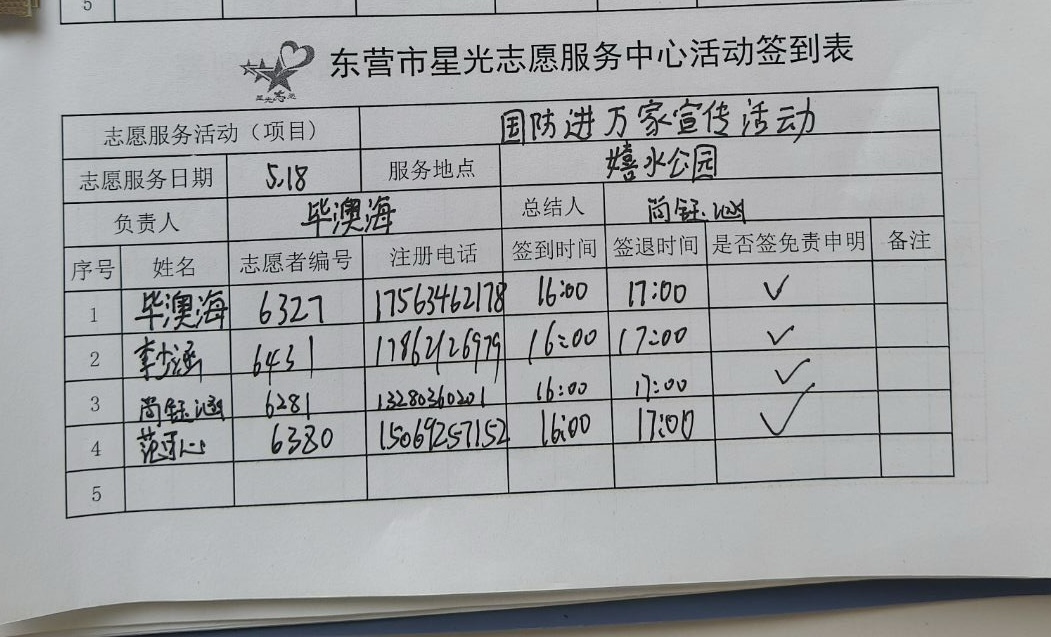 5
星光志愿
东营市星光志愿服务中心活动签到表
志愿服务活动（项目） 国防进万家宣传活动
志愿服务日期 5.18 服务地点 嬉水公园
负责人 毕澳海 总结人 尚钰涵
序号 姓名 志愿者编号 注册电话 签到时间 签退时间 是否签免责申明 备注
1 毕澳海 6327 17563462178 16:00 17:00 ✓
2 李少涵 6431 17862126979 16:00 17:00 ✓
3 尚钰涵 6281 13280360201 16:00 17:00 ✓
4 范可心 6380 15069257152 16:00 17:00 ✓
5